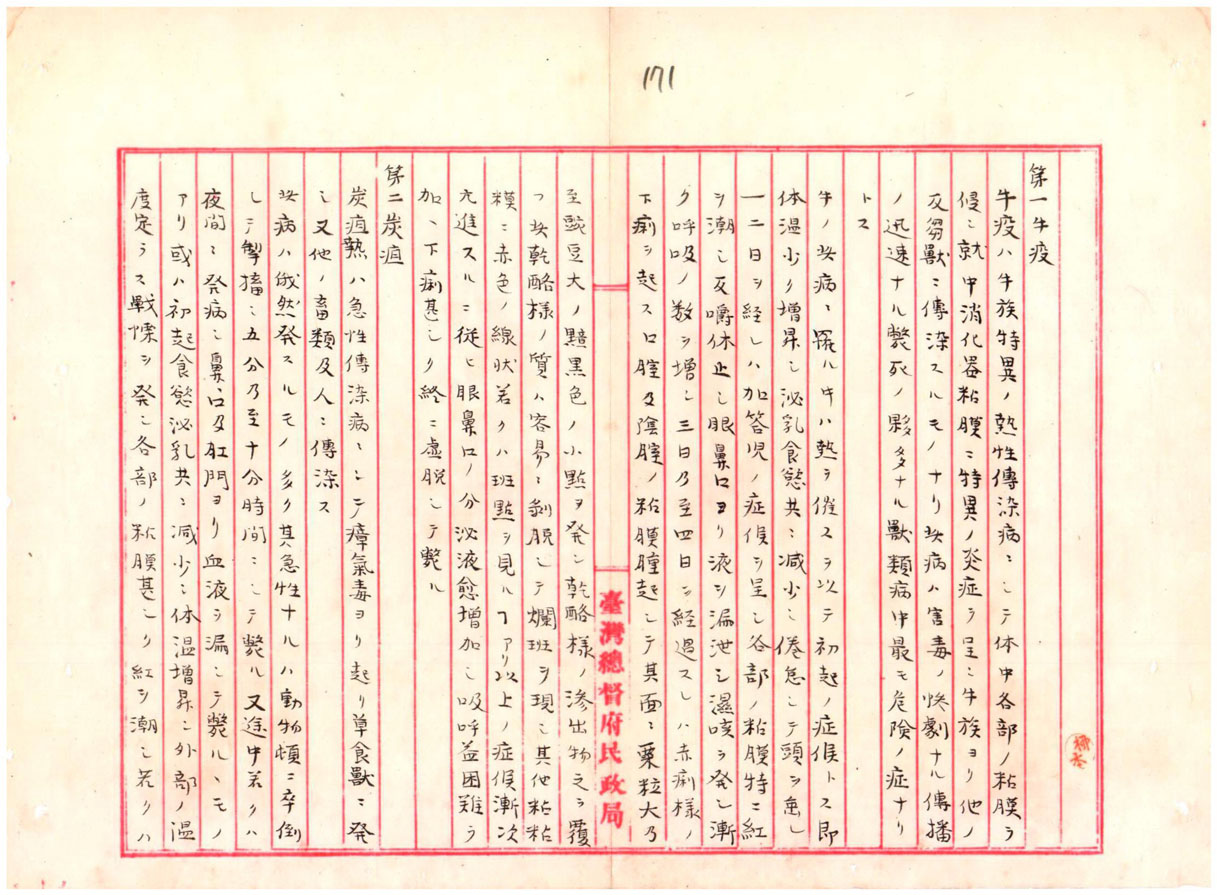 171
第一牛疫
牛疫ハ牛族特異ノ熱性傳染病ニシテ体中各部ノ粘膜ヲ
侵シ就中消化器粘膜ニ特異ノ炎症ヲ呈シ牛族ヨリ他ノ
反芻獣ニ傳染スルモノナリ此病ハ害毒ノ惨劇ナル傳播
ノ迅速ナル斃死ノ夥多ナル獸類病中最モ危険ノ症ナリ
トス
牛ノ此病ニ罹ルヤハ熱ヲ催スヲ以テ初起ノ症候トス即
体温少ク増昇シ泌乳食慾共ニ減少シ倦怠シテ頭ヲ垂レ
一二日ヲ経レハ加答児ノ症候ヲ呈シ各部ノ粘膜特ニ紅
ヲ潮シ反嚼休止シ眼鼻口ヨリ液ヲ漏泄シ濕咳ヲ発シ漸
ク呼吸ノ数ヲ増シ三日乃至四日ヲ経過スレハ赤痢様ノ
下痢ヲ起ス口腔及陰腔ノ粘膜腫起シテ其面ニ粟粒大乃
臺灣總督府民政局
至豌豆大ノ黯黒色ノ小點ヲ発シ乾酪様ノ滲出物之ヲ覆
フ此乾酪様ノ質ハ容易ニ剥脱シテ爛斑ヲ現シ其他粘粘
糢ニ赤色ノ線状若クハ班點ヲ見ルヿアリ以上ノ症候漸次
亢進スルニ従ヒ眼鼻口ノ分泌液愈増加シ吸呼益困難ヲ
加ヘ下痢甚シク終ニ虚脱シテ斃ル
第二炭疽
炭疽熱ハ急性傳染病ニシテ瘴氣毒ヨリ起リ草食獸ニ発
シ又他ノ畜類及人ニ傳染ス
此病ハ俄然発スルモノ多ク其急性ナルハ動物頓ニ卒倒
シテ搐搦シ五分乃至十分時間ニシテ斃ル又途中若クハ
夜間ニ発病シ鼻、口及肛門ヨリ血液ヲ漏シテ斃ルヽモノ
アリ或ハ初起食慾泌乳共ニ減少シ体温増昇シ外部ノ温
度定ラス戰慄ヲ発シ各部ノ粘膜甚シク紅ヲ潮シ若クハ